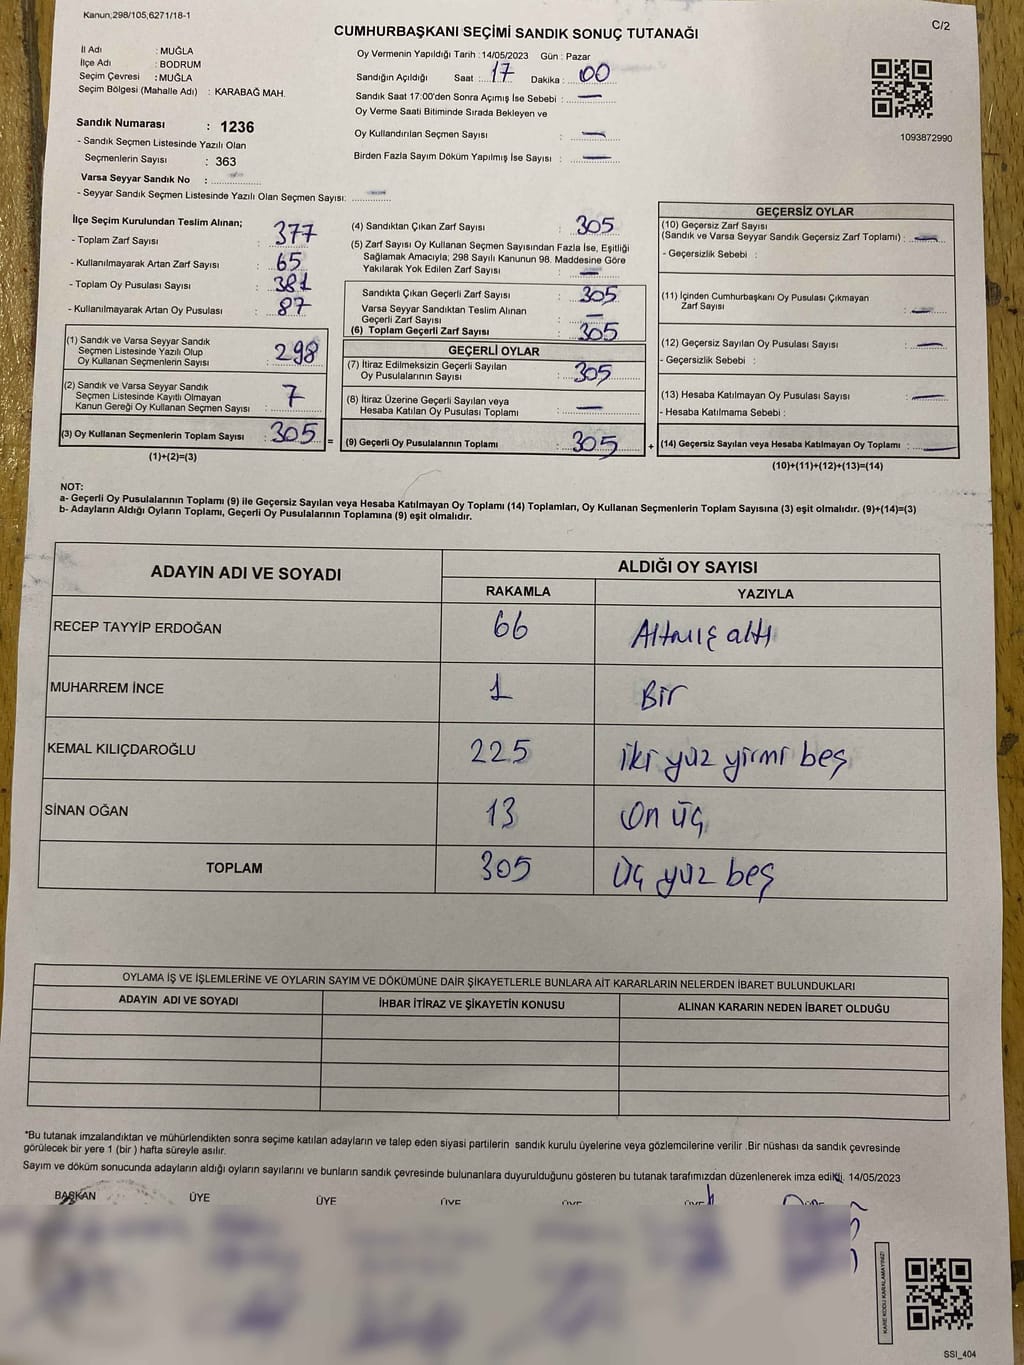 Kanun,298/105,6271/18-1
C/2
CUMHURBAŞKANI SEÇİMİ SANDIK SONUÇ TUTANAĞI
İl Adı : MUĞLA
İlçe Adı : BODRUM
Seçim Çevresi : MUĞLA
Seçim Bölgesi (Mahalle Adı) : KARABAĞ MAH.
Oy Vermenin Yapıldığı Tarih : 14/05/2023 Gün : Pazar
Sandığın Açıldığı Saat : 17 Dakika : 00
Sandık Saat 17:00'den Sonra Açımış İse Sebebi : —
Oy Verme Saati Bitiminde Sırada Bekleyen ve
Oy Kullandırılan Seçmen Sayısı : —
Birden Fazla Sayım Döküm Yapılmış İse Sayısı : —
1093872990
Sandık Numarası : 1236
- Sandık Seçmen Listesinde Yazılı Olan
Seçmenlerin Sayısı : 363
Varsa Seyyar Sandık No : —
- Seyyar Sandık Seçmen Listesinde Yazılı Olan Seçmen Sayısı: —
İlçe Seçim Kurulundan Teslim Alınan;
- Toplam Zarf Sayısı : 377
- Kullanılmayarak Artan Zarf Sayısı : 65
- Toplam Oy Pusulası Sayısı : 381
- Kullanılmayarak Artan Oy Pusulası : 87
(1) Sandık ve Varsa Seyyar Sandık
Seçmen Listesinde Yazılı Olup
Oy Kullanan Seçmenlerin Sayısı : 298
(2) Sandık ve Varsa Seyyar Sandık
Seçmen Listesinde Kayıtlı Olmayan
Kanun Gereği Oy Kullanan Seçmen Sayısı : 7
(3) Oy Kullanan Seçmenlerin Toplam Sayısı : 305 =
(1)+(2)=(3)
(4) Sandıktan Çıkan Zarf Sayısı : 305
(5) Zarf Sayısı Oy Kullanan Seçmen Sayısından Fazla İse, Eşitliği
Sağlamak Amacıyla; 298 Sayılı Kanunun 98. Maddesine Göre
Yakılarak Yok Edilen Zarf Sayısı : —
Sandıkta Çıkan Geçerli Zarf Sayısı : 305
Varsa Seyyar Sandıktan Teslim Alınan
Geçerli Zarf Sayısı : —
(6) Toplam Geçerli Zarf Sayısı : 305
GEÇERLİ OYLAR
(7) İtiraz Edilmeksizin Geçerli Sayılan
Oy Pusulalarının Sayısı : 305
(8) İtiraz Üzerine Geçerli Sayılan veya
Hesaba Katılan Oy Pusulası Toplamı : —
(9) Geçerli Oy Pusulalarının Toplamı : 305 +
GEÇERSİZ OYLAR
(10) Geçersiz Zarf Sayısı
(Sandık ve Varsa Seyyar Sandık Geçersiz Zarf Toplamı) : —
- Geçersizlik Sebebi :
(11) İçinden Cumhurbaşkanı Oy Pusulası Çıkmayan
Zarf Sayısı : —
(12) Geçersiz Sayılan Oy Pusulası Sayısı : —
- Geçersizlik Sebebi :
(13) Hesaba Katılmayan Oy Pusulası Sayısı : —
- Hesaba Katılmama Sebebi :
(14) Geçersiz Sayılan veya Hesaba Katılmayan Oy Toplamı : —
(10)+(11)+(12)+(13)=(14)
NOT:
a- Geçerli Oy Pusulalarının Toplamı (9) ile Geçersiz Sayılan veya Hesaba Katılmayan Oy Toplamı (14) Toplamları, Oy Kullanan Seçmenlerin Toplam Sayısına (3) eşit olmalıdır. (9)+(14)=(3)
b- Adayların Aldığı Oyların Toplamı, Geçerli Oy Pusulalarının Toplamına (9) eşit olmalıdır.
ADAYIN ADI VE SOYADI
ALDIĞI OY SAYISI
RAKAMLA YAZIYLA
RECEP TAYYİP ERDOĞAN 66 Altmış altı
MUHARREM İNCE 1 Bir
KEMAL KILIÇDAROĞLU 225 iki yüz yirmi beş
SİNAN OĞAN 13 On üç
TOPLAM 305 Üç yüz beş
OYLAMA İŞ VE İŞLEMLERİNE VE OYLARIN SAYIM VE DÖKÜMÜNE DAİR ŞİKAYETLERLE BUNLARA AİT KARARLARIN NELERDEN İBARET BULUNDUKLARI
ADAYIN ADI VE SOYADI İHBAR İTİRAZ VE ŞİKAYETİN KONUSU ALINAN KARARIN NEDEN İBARET OLDUĞU
*Bu tutanak imzalandıktan ve mühürlendikten sonra seçime katılan adayların ve talep eden siyasi partilerin sandık kurulu üyelerine veya gözlemcilerine verilir .Bir nüshası da sandık çevresinde
görülecek bir yere 1 (bir ) hafta süreyle asılır.
Sayım ve döküm sonucunda adayların aldığı oyların sayılarını ve bunların sandık çevresinde bulunanlara duyurulduğunu gösteren bu tutanak tarafımızdan düzenlenerek imza edildi. 14/05/2023
BAŞKAN ÜYE ÜYE ÜYE ÜYE ÜYE
KARE KODU KARALAMAYINIZ!
SSI_404